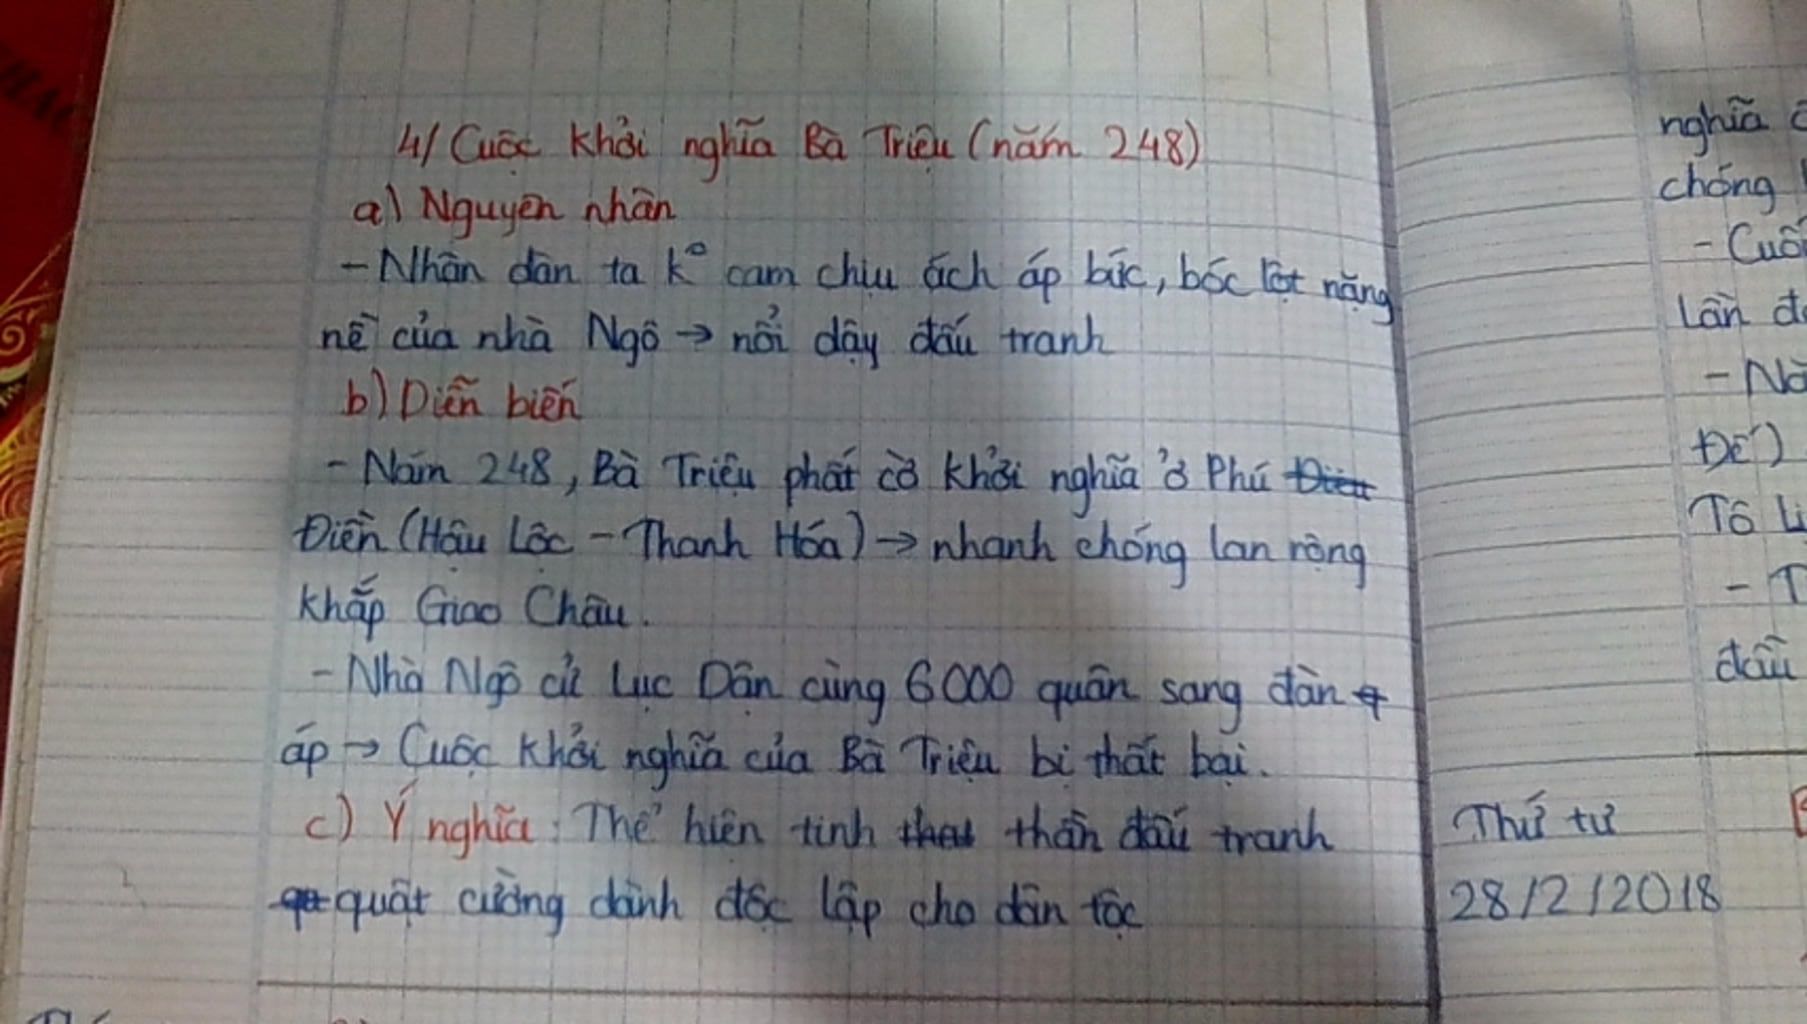 4/ Cuộc khởi nghĩa Bà Triệu (năm 248)
a) Nguyên nhân
- Nhân dân ta kº cam chịu ách áp bức, bóc lột nặng
nề của nhà Ngô → nổi dậy đấu tranh
b) Diễn biến
- Năm 248, Bà Triệu phất cờ khởi nghĩa ở Phú
Điền (Hậu Lộc - Thanh Hóa) → nhanh chóng lan rộng
khắp Giao Châu.
- Nhà Ngô cử Lục Dận cùng 6000 quân sang đàn
áp → Cuộc khởi nghĩa của Bà Triệu bị thất bại.
c) Ý nghĩa: Thể hiện tinh thần đấu tranh
quật cường dành độc lập cho dân tộc
nghĩa
chống
- Cuối
Lần
Đế)
Tô
- T
đầu
Thứ tư
28/2/2018